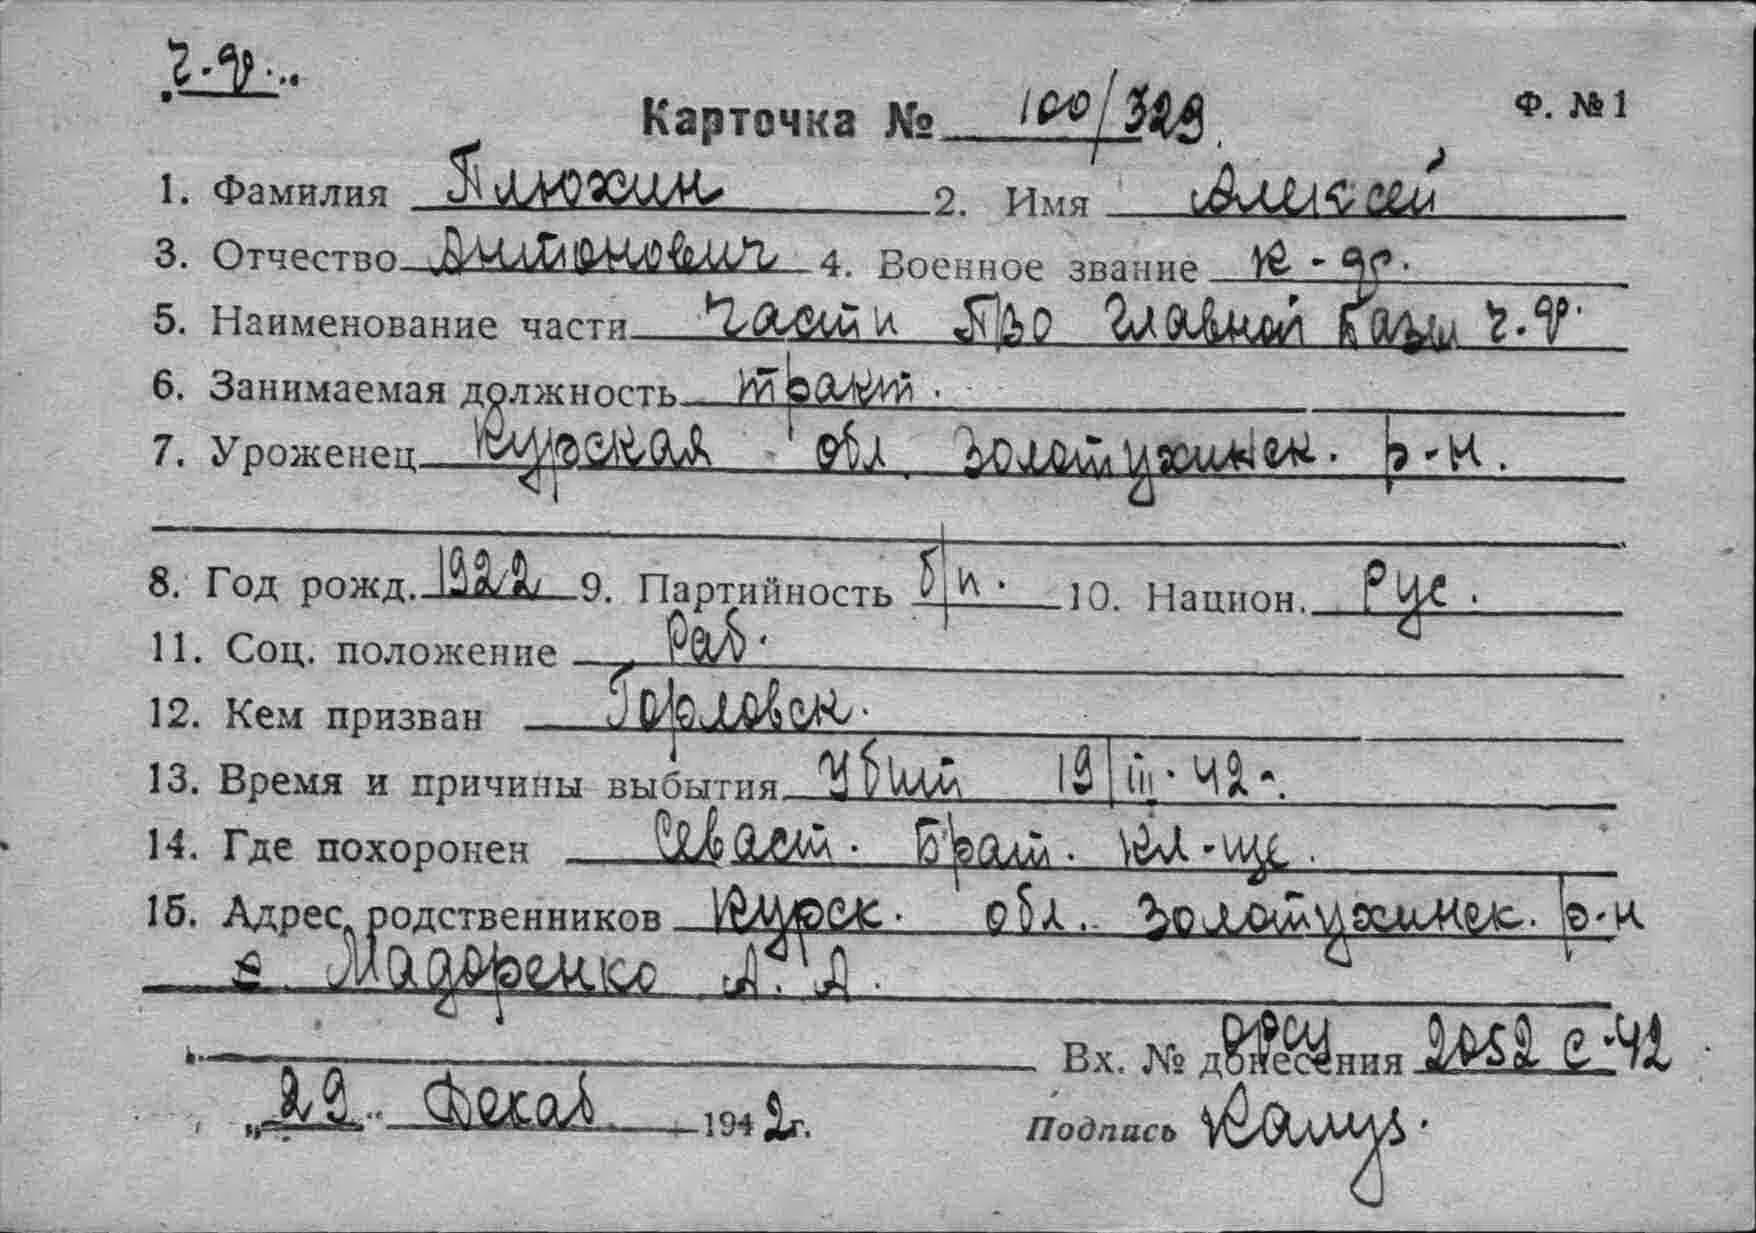 ч.ф...
Карточка № 100/329. Ф. №1
1. Фамилия Плюхин 2. Имя Алексей
3. Отчество Антонович 4. Военное звание к-ф.
5. Наименование части Части ПВО Главной базы ч.ф.
6. Занимаемая должность тракт.
7. Уроженец Курская обл. Золотухинск. р-н.
8. Год рожд. 1922 9. Партийность б/п. 10. Национ. Рус.
11. Соц. положение Раб.
12. Кем призван Горловск.
13. Время и причины выбытия Убит 19/III.42г.
14. Где похоронен Севаст. Брат. кл-ще.
15. Адрес родственников Курск. обл. Золотухинск. р-н
с. Мадоренко А. А.
Вх. № донесения орсу 2052 с-42
„29" Декаб 1942г. Подпись